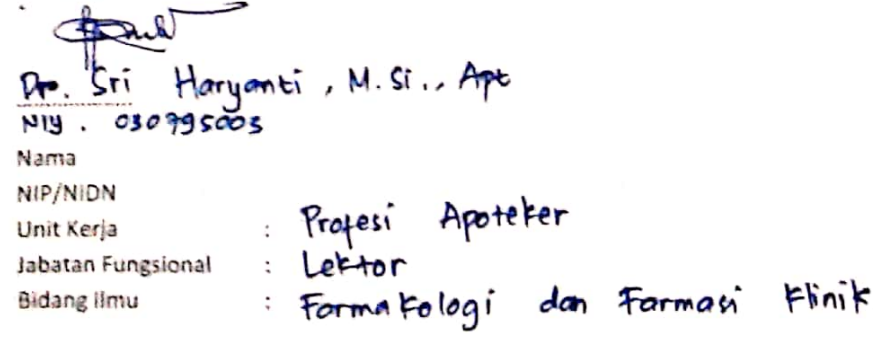 Dra. Sri Haryanti, M.Si., Apt
NIY. 030795003
Nama
NIP/NIDN
Unit Kerja : Profesi Apoteker
Jabatan Fungsional : Lektor
Bidang Ilmu : Farmakologi dan Farmasi Klinik